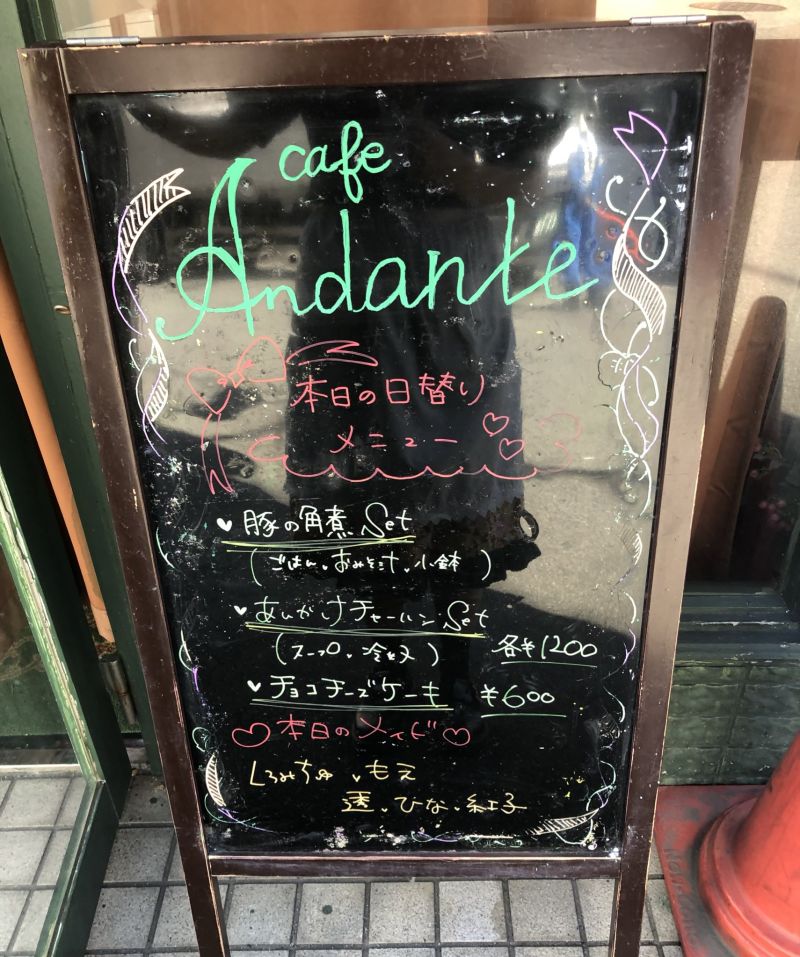 cafe
Andante
本日の日替り
メニュー
豚の角煮 Set
(ごはん、おみそ汁、小鉢)
あんかけチャーハン Set
(スープ、冷奴)
各¥1200
チョコチーズケーキ ¥600
♡本日のメイド♡
くろみちゃ、もえ
透、ひな、紅子